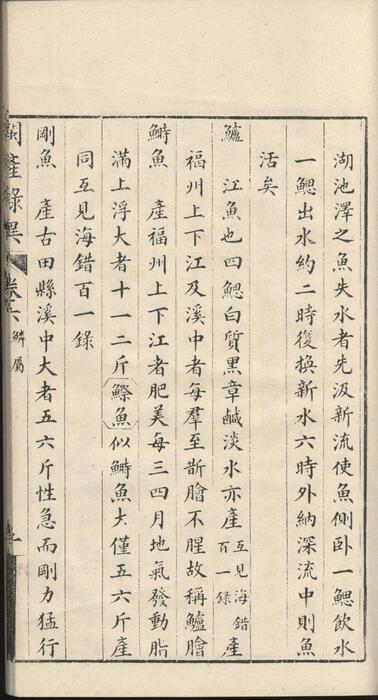 湖池澤之魚失水者先汲新流使魚側卧一鰓飲水
一鰓出水約二時復換新水六時外納深流中則魚
活矣
鱸　江魚也四鰓白質黒章鹹淡水亦產互見海錯百一錄產
福州上下江及溪中者每羣至斮膾不腥故稱鱸膾
鰣魚　產福州上下江者肥美每三四月地氣發動脂
滿上浮大者十一二斤鰶魚似鰣魚大僅五六斤產
同互見海錯百一錄
剛魚　產古田縣溪中大者五六斤性急而剛力猛行
閩產錄異　卷六　鱗屬